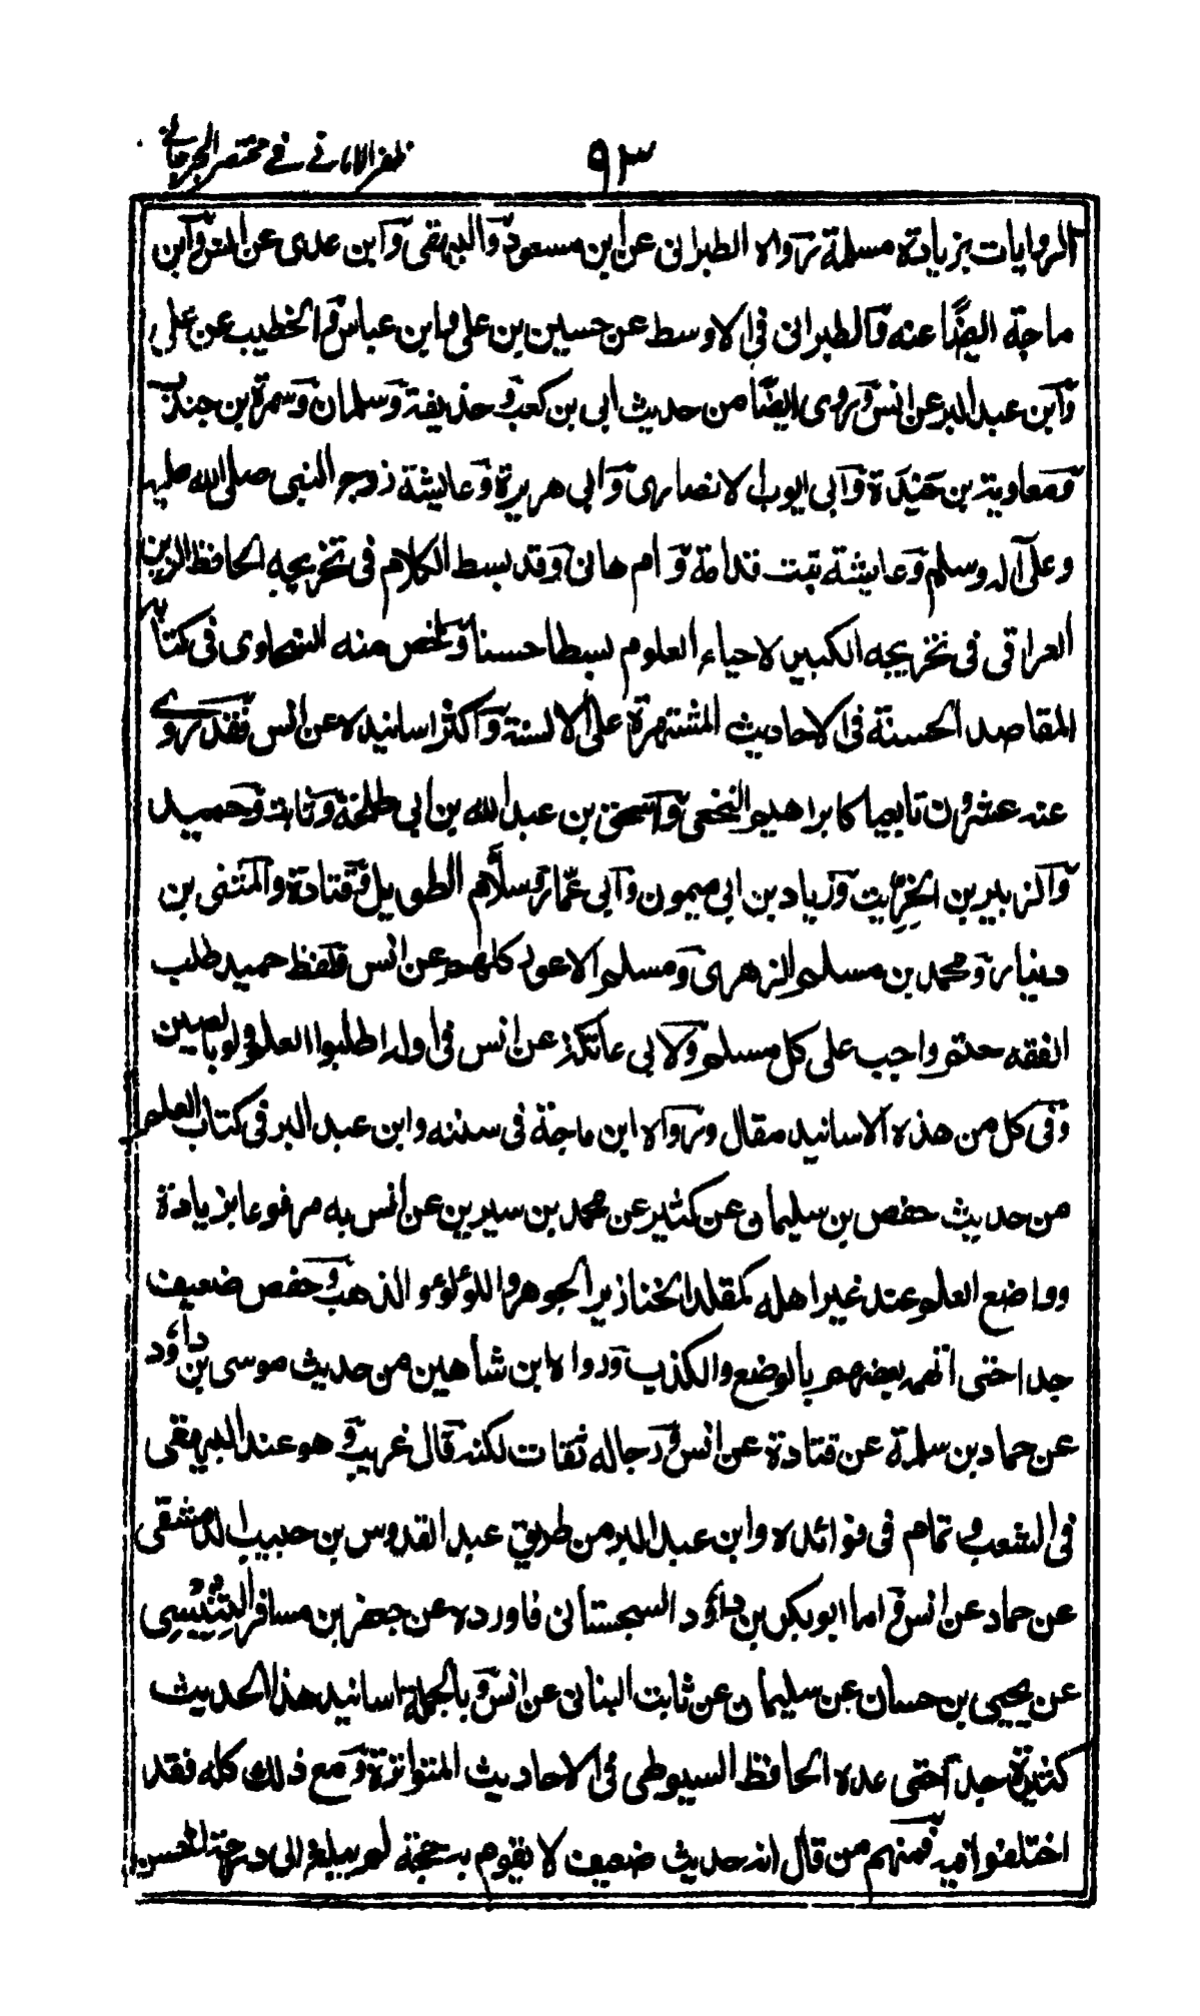 ٩٣ ظفر الامانی فی مختصر الجرجانی
الروایات بزیادة مسلمة رواه الطبرانی عن ابن مسعود والبیهقی وابن عدی عن انس وابن
ماجة ایضًا عنه والطبرانی فی الاوسط عن حسین بن علی وابن عباس والخطیب عن علی
وابن عبد البر عن انس وروی ایضًا من حدیث ابی بن کعب وحذیفة وسلمان وسمرة بن جندب
ومعاویة بن حیدة وابی ایوب الانصاری وابی هریرة وعایشة زوج النبی صلی الله علیه
وعلی آله وسلم وعایشة بنت قدامة وام هانی وقد بسط الکلام فی تخریجه الحافظ الزین
العراقی فی تخریجه الکبیر لاحیاء العلوم بسطا حسنا ولخص منه السخاوی فی کتابه
المقاصد الحسنة فی الاحادیث المشتهرة علی الالسنة واکثر اسانیده عن انس فقد روی
عنه عشرون تابعیا کابراهیم النخعی واسحق بن عبد الله بن ابی طلحة وثابت وحمید
والزبیر بن الخِرِّیت وزیاد بن ابی میمون وابی عمّار وسلّام الطویل وقتادة والمثنی بن
دینار ومحمد بن مسلم الزهری ومسلم الاعور کلهم عن انس ولفظ حمید طلب
الفقه حتم واجب علی کل مسلم ولابی عاتکة عن انس فی اوله اطلبوا العلم ولو بالصین
وفی کل من هذه الاسانید مقال ورواه ابن ماجة فی سننه وابن عبد البر فی کتاب العلم
من حدیث حفص بن سلیمان عن کثیر عن محمد بن سیرین عن انس به مرفوعا بزیادة
وواضع العلم عند غیر اهله کمقلد الخنازیر الجوهر واللؤلؤ والذهب وحفص ضعیف
جدا حتی اتهمه بعضهم بالوضع والکذب ورواه ابن شاهین من حدیث موسی بن داؤد
عن حماد بن سلمة عن قتادة عن انس ورجاله ثقات لکنه قال غریب وهو عند البیهقی
فی الشعب وتمام فی فوائده وابن عبد البر من طریق عبد القدوس بن حبیب الدمشقی
عن حماد عن انس واما ابو بکر بن داؤد السجستانی فاورده عن جعفر بن مسافر التِنِّیْسِی
عن یحیی بن حسان عن سلیمان عن ثابت البنانی عن انس وبالجملة اسانید هذا الحدیث
کثیرة جدا حتی عده الحافظ السیوطی فی الاحادیث المتواترة ومع ذلک کله فقد
اختلفوا فیه فمنهم من قال انه حدیث ضعیف لا یقوم به حجة لم یبلغ الی درجة الحسن